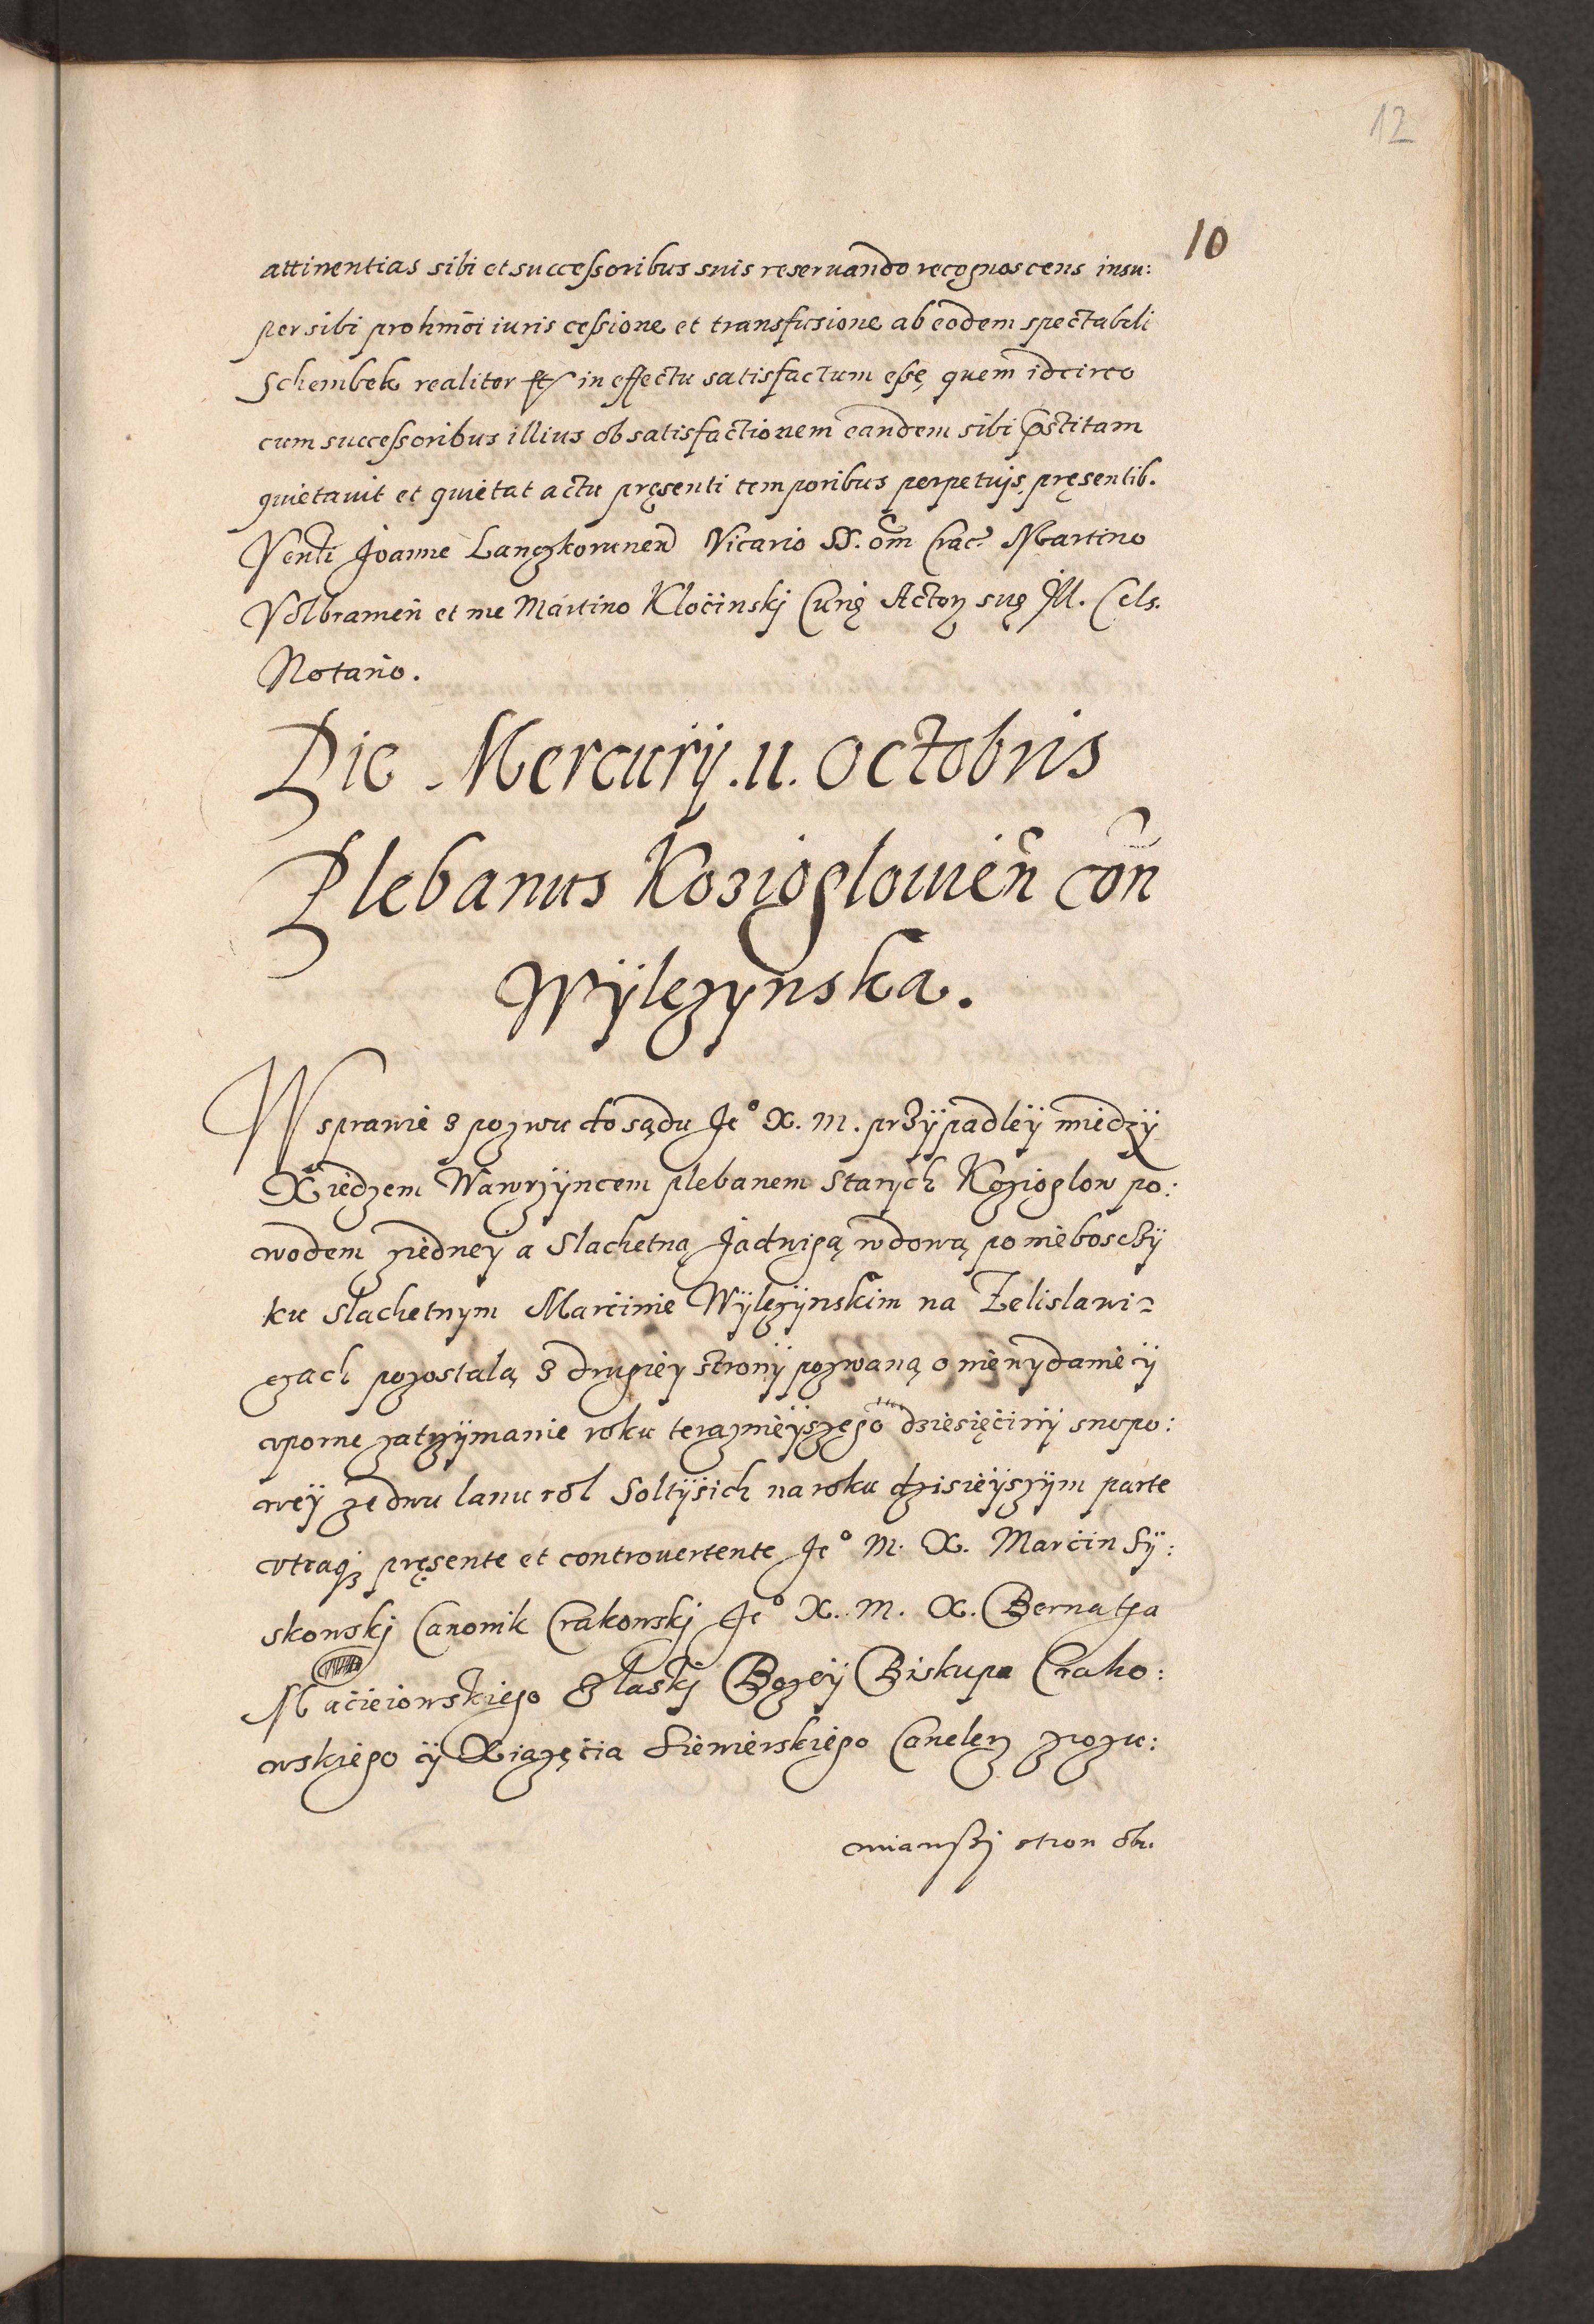 12
10
attinentias sibi et successoribus suis reseruando recognoscens insu:
per sibi pro hmōi iuris cessione et transfusione ab eodem spectabili
Schembek realiter et in effectu satisfactum esse, quem idcirco
cum successoribus illius ob satisfactionem eandem sibi p̄stitam
quietauit et quietat actu pręsenti temporibus perpetuis, pręsentib.
Venli Joanne Lanczkorunen Vicario SS. om̄ Crac. Martino
Volbramen̄ et me Martino Kloċinskj Curię Actorꝝ suę Ill. Cels.
Notario.
Die Mercurij .11. Octobris
Plebanus Kozioglouien̄ con̄
Wÿlezynska.
W sprawie z pozwu do sądu Je° X. M. przÿpadlëÿ miedzÿ
Xiedzem Wawrzÿncem plebanem Starÿch Kozioglow po:
wodem ziedney a Slachetną Jadwigą wdową po nieboszcżÿ
ku Slachetnym Marċinie Wÿlezÿnskim na Zelislawi:
czach pozostalą z drugiëy stronÿ pozwaną o niewydanie ÿ
vporne zatrzÿmanie roku teraznieÿszego dziesięċinÿ snopo:
wëÿ ze dwu lanu rol Soltÿsich na roku dzisieÿszÿm parte
vtraqꝫ pręsente et controuertente Je° M. X. Marċin Sÿ:
skowskj Canonik Crakowskj Je° X. M. X. Bernatha
Maċieiowskiego z łaskj Bozëÿ Biskupa Crako:
wskiego ÿ Xiązęċia Siewierskiego Canclerz zrozu:
miawszj stron ob.